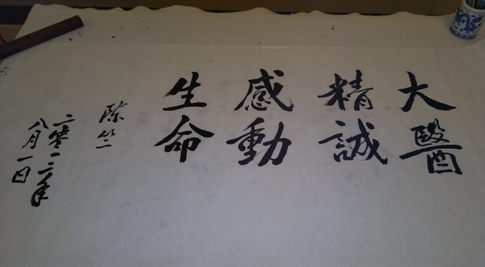 大醫
精誠
感動
生命
陳竺
二零一二年
八月一日